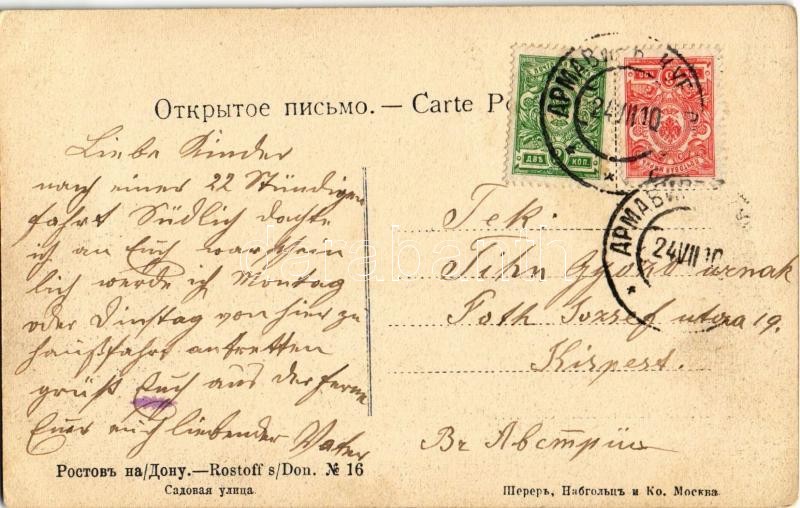 Открытое письмо. — Carte Po
АРМАВИР
24 VII 10
ДВѢ КОП.
АРМАВИ
24 VII 10
Liebe Kinder
nach einer 22 Stündigen
fahrt Südlich dachte
ich an Euch warschein
lich werde ich Montag
oder Dinstag von hier zu
haußfahrt antretten
grüßt Euch aus der ferne
Euer euch liebender Vater
Tek.
Tihn Győző urnak
Toth Jozsef utcza 19.
Kispest.
Въ Австрію
Ростовъ на/Дону.—Rostoff s/Don. № 16
Садовая улица
Шереръ, Набгольцъ и Ко. Москва
darabanth